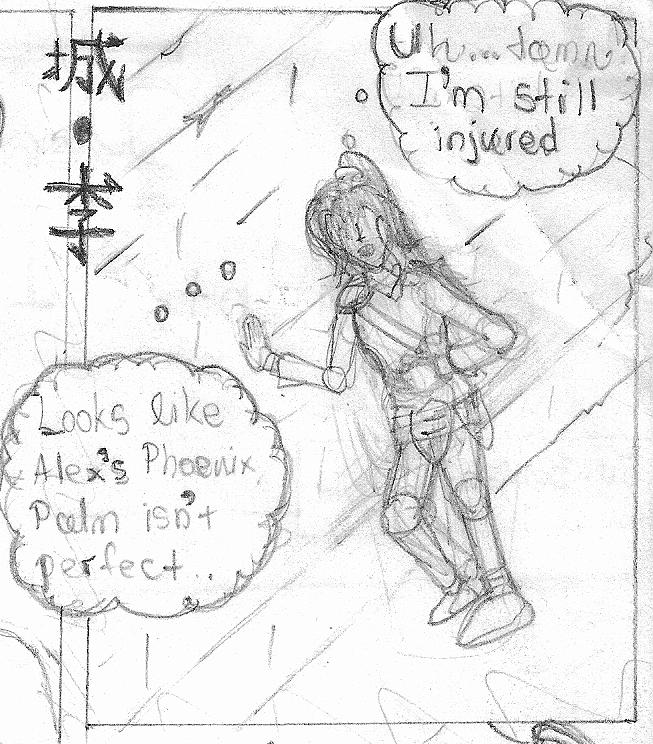 城
•
李
Uh...damn.
I'm still
injured
Looks like
Alex's Phoenix
Palm isn't
perfect..